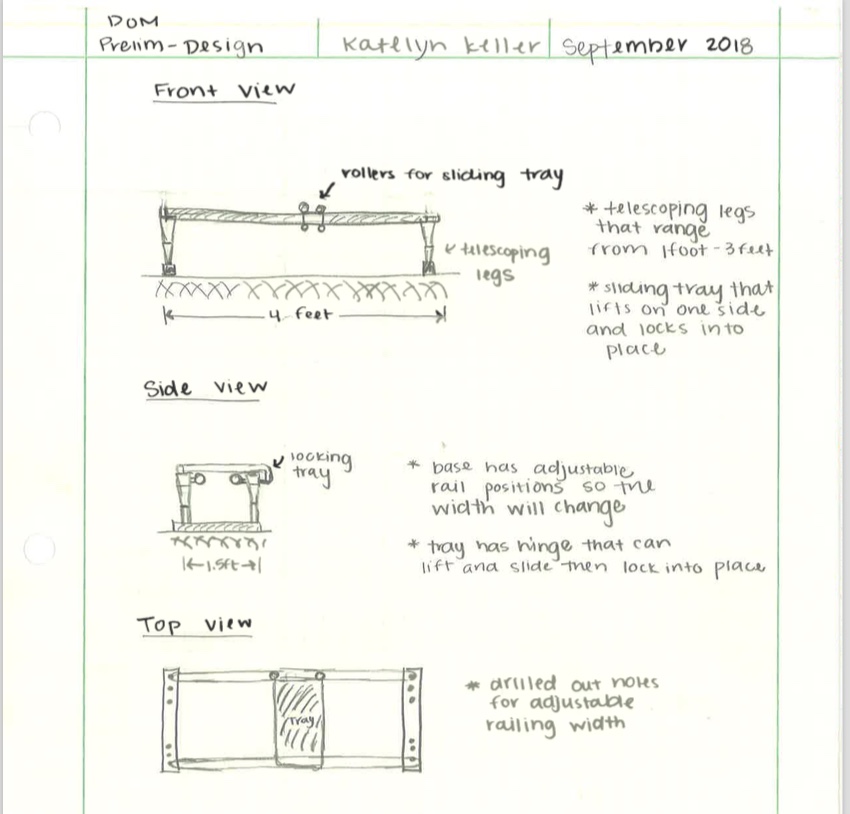 DOM
Prelim-Design
Katelyn Keller
September 2018
Front view
rollers for sliding tray
* telescoping legs
that range
from 1foot-3feet
telescoping
legs
* sliding tray that
lifts on one side
and locks into
place
4 feet
Side view
locking
tray
* base has adjustable
rail positions so the
width will change
* tray has hinge that can
lift and slide then lock into place
1.5ft
Top view
* drilled out holes
for adjustable
railing width
tray